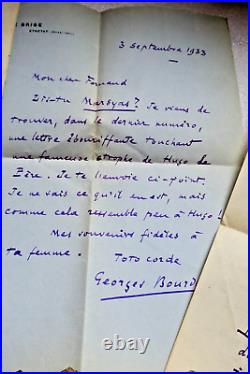 BRISE
ETRETAT
3 Septembre 1933
Mon cher Fernand
Lis-tu Marsyas ? Je viens de
trouver, dans le dernier numéro,
une lettre ébouriffante touchant
une fameuse strophe de Hugo le
Père. Je te l'envoie ci-joint.
Je ne sais ce qu'il en est, mais
comme cela ressemble peu à Hugo !
Mes souvenirs fidèles à
ta femme.
Toto corde
Georges